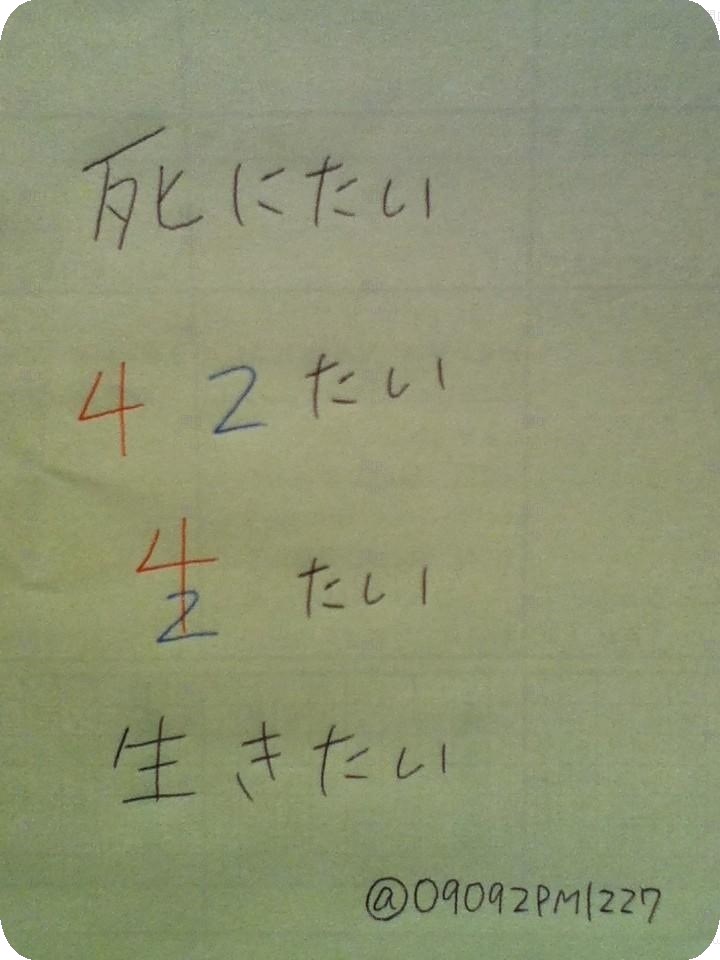 死にたい
4 2たい
4
2 たい
生きたい
@09092PM1227